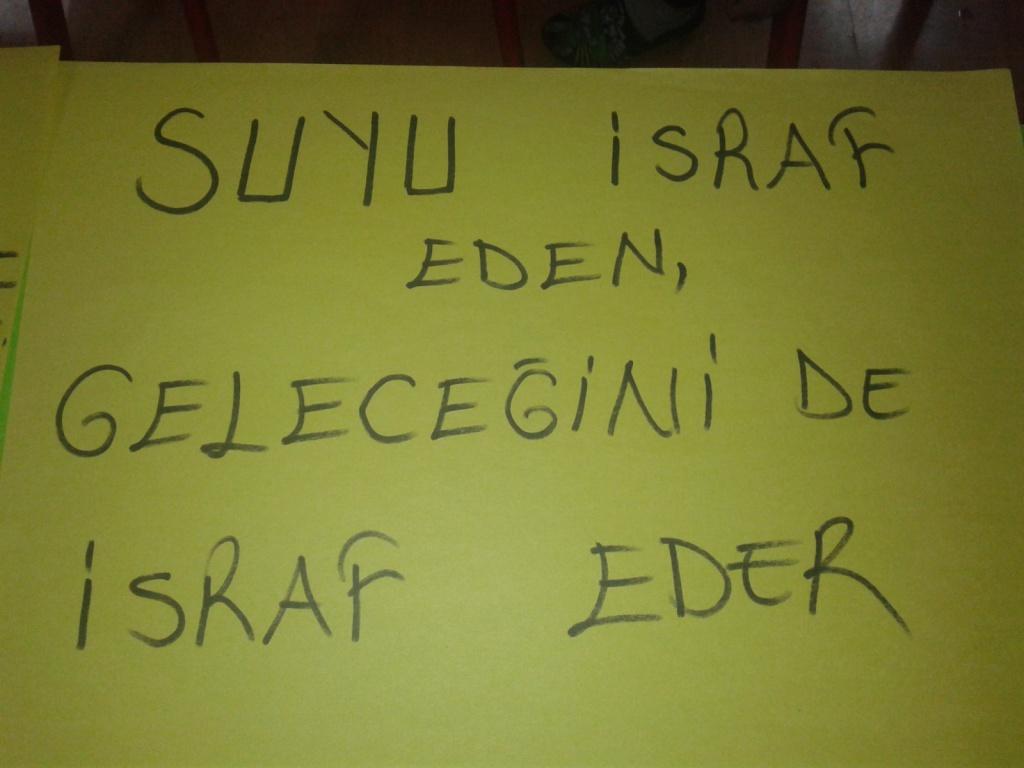 SUYU İSRAF
EDEN,
GELECEĞİNİ DE
İSRAF EDER